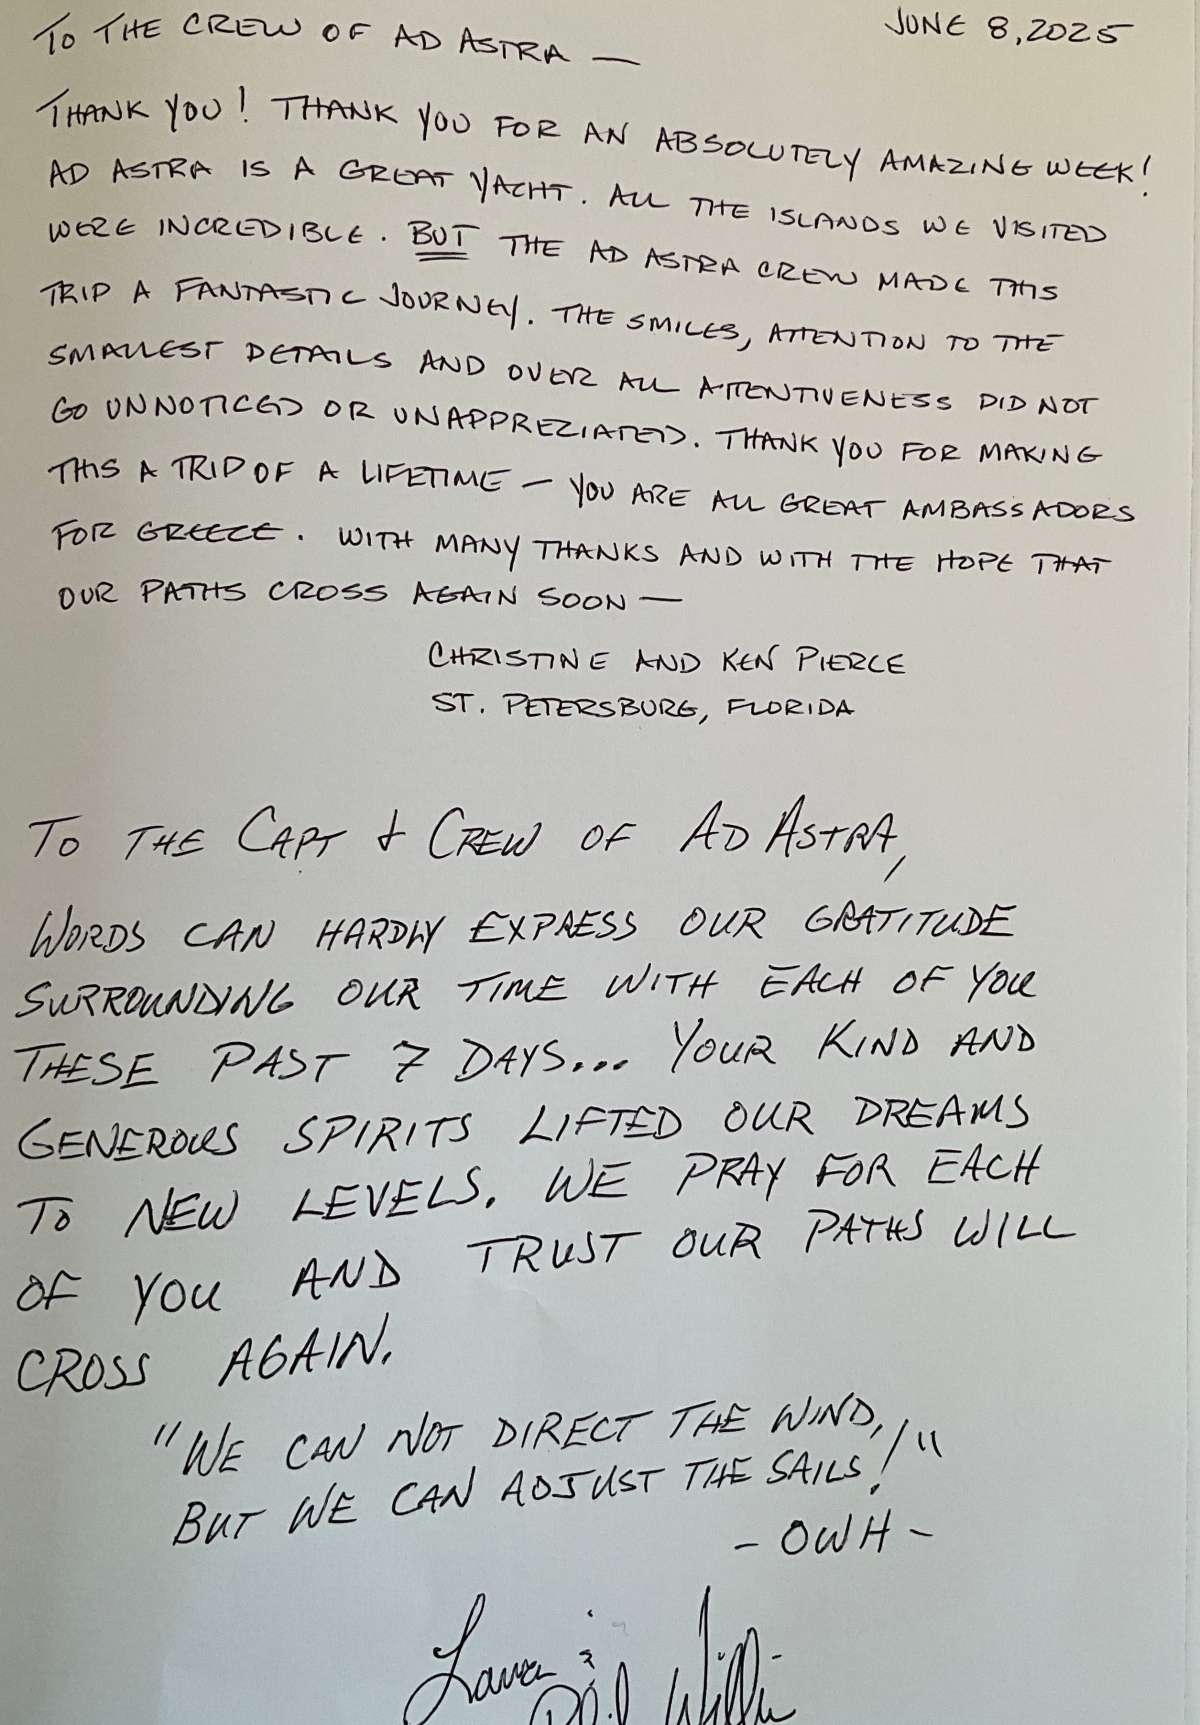 JUNE 8, 2025
TO THE CREW OF AD ASTRA —
THANK YOU! THANK YOU FOR AN ABSOLUTELY AMAZING WEEK!
AD ASTRA IS A GREAT YACHT. ALL THE ISLANDS WE VISITED
WERE INCREDIBLE. BUT THE AD ASTRA CREW MADE THIS
TRIP A FANTASTIC JOURNEY. THE SMILES, ATTENTION TO THE
SMALLEST DETAILS AND OVER ALL ATTENTIVENESS DID NOT
GO UNNOTICED OR UNAPPREZIATED. THANK YOU FOR MAKING
THIS A TRIP OF A LIFETIME — YOU ARE ALL GREAT AMBASSADORS
FOR GREECE. WITH MANY THANKS AND WITH THE HOPE THAT
OUR PATHS CROSS AGAIN SOON —
CHRISTINE AND KEN PIERCE
ST. PETERSBURG, FLORIDA
TO THE CAPT & CREW OF AD ASTRA,
WORDS CAN HARDLY EXPRESS OUR GRATITUDE
SURROUNDING OUR TIME WITH EACH OF YOU
THESE PAST 7 DAYS... YOUR KIND AND
GENEROUS SPIRITS LIFTED OUR DREAMS
TO NEW LEVELS. WE PRAY FOR EACH
OF YOU AND TRUST OUR PATHS WILL
CROSS AGAIN.
"WE CAN NOT DIRECT THE WIND,
BUT WE CAN ADJUST THE SAILS!"
- OWH -